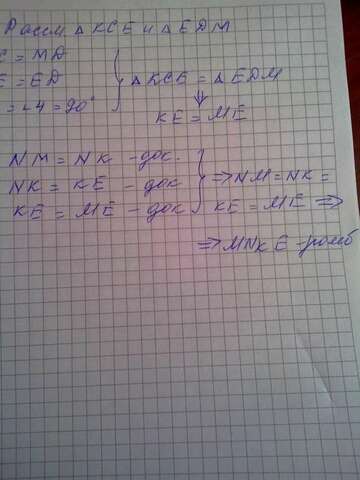 Рассм △ KCE и △ EDM
C = MD
E = ED
= ∠4 = 90°
△ KCE = △ EDM
⇓
KE = ME
NM = NK - док.
NK = KE - док
KE = ME - док
⇒ NM = NK =
KE = ME ⇒
⇒ MNKE - ромб